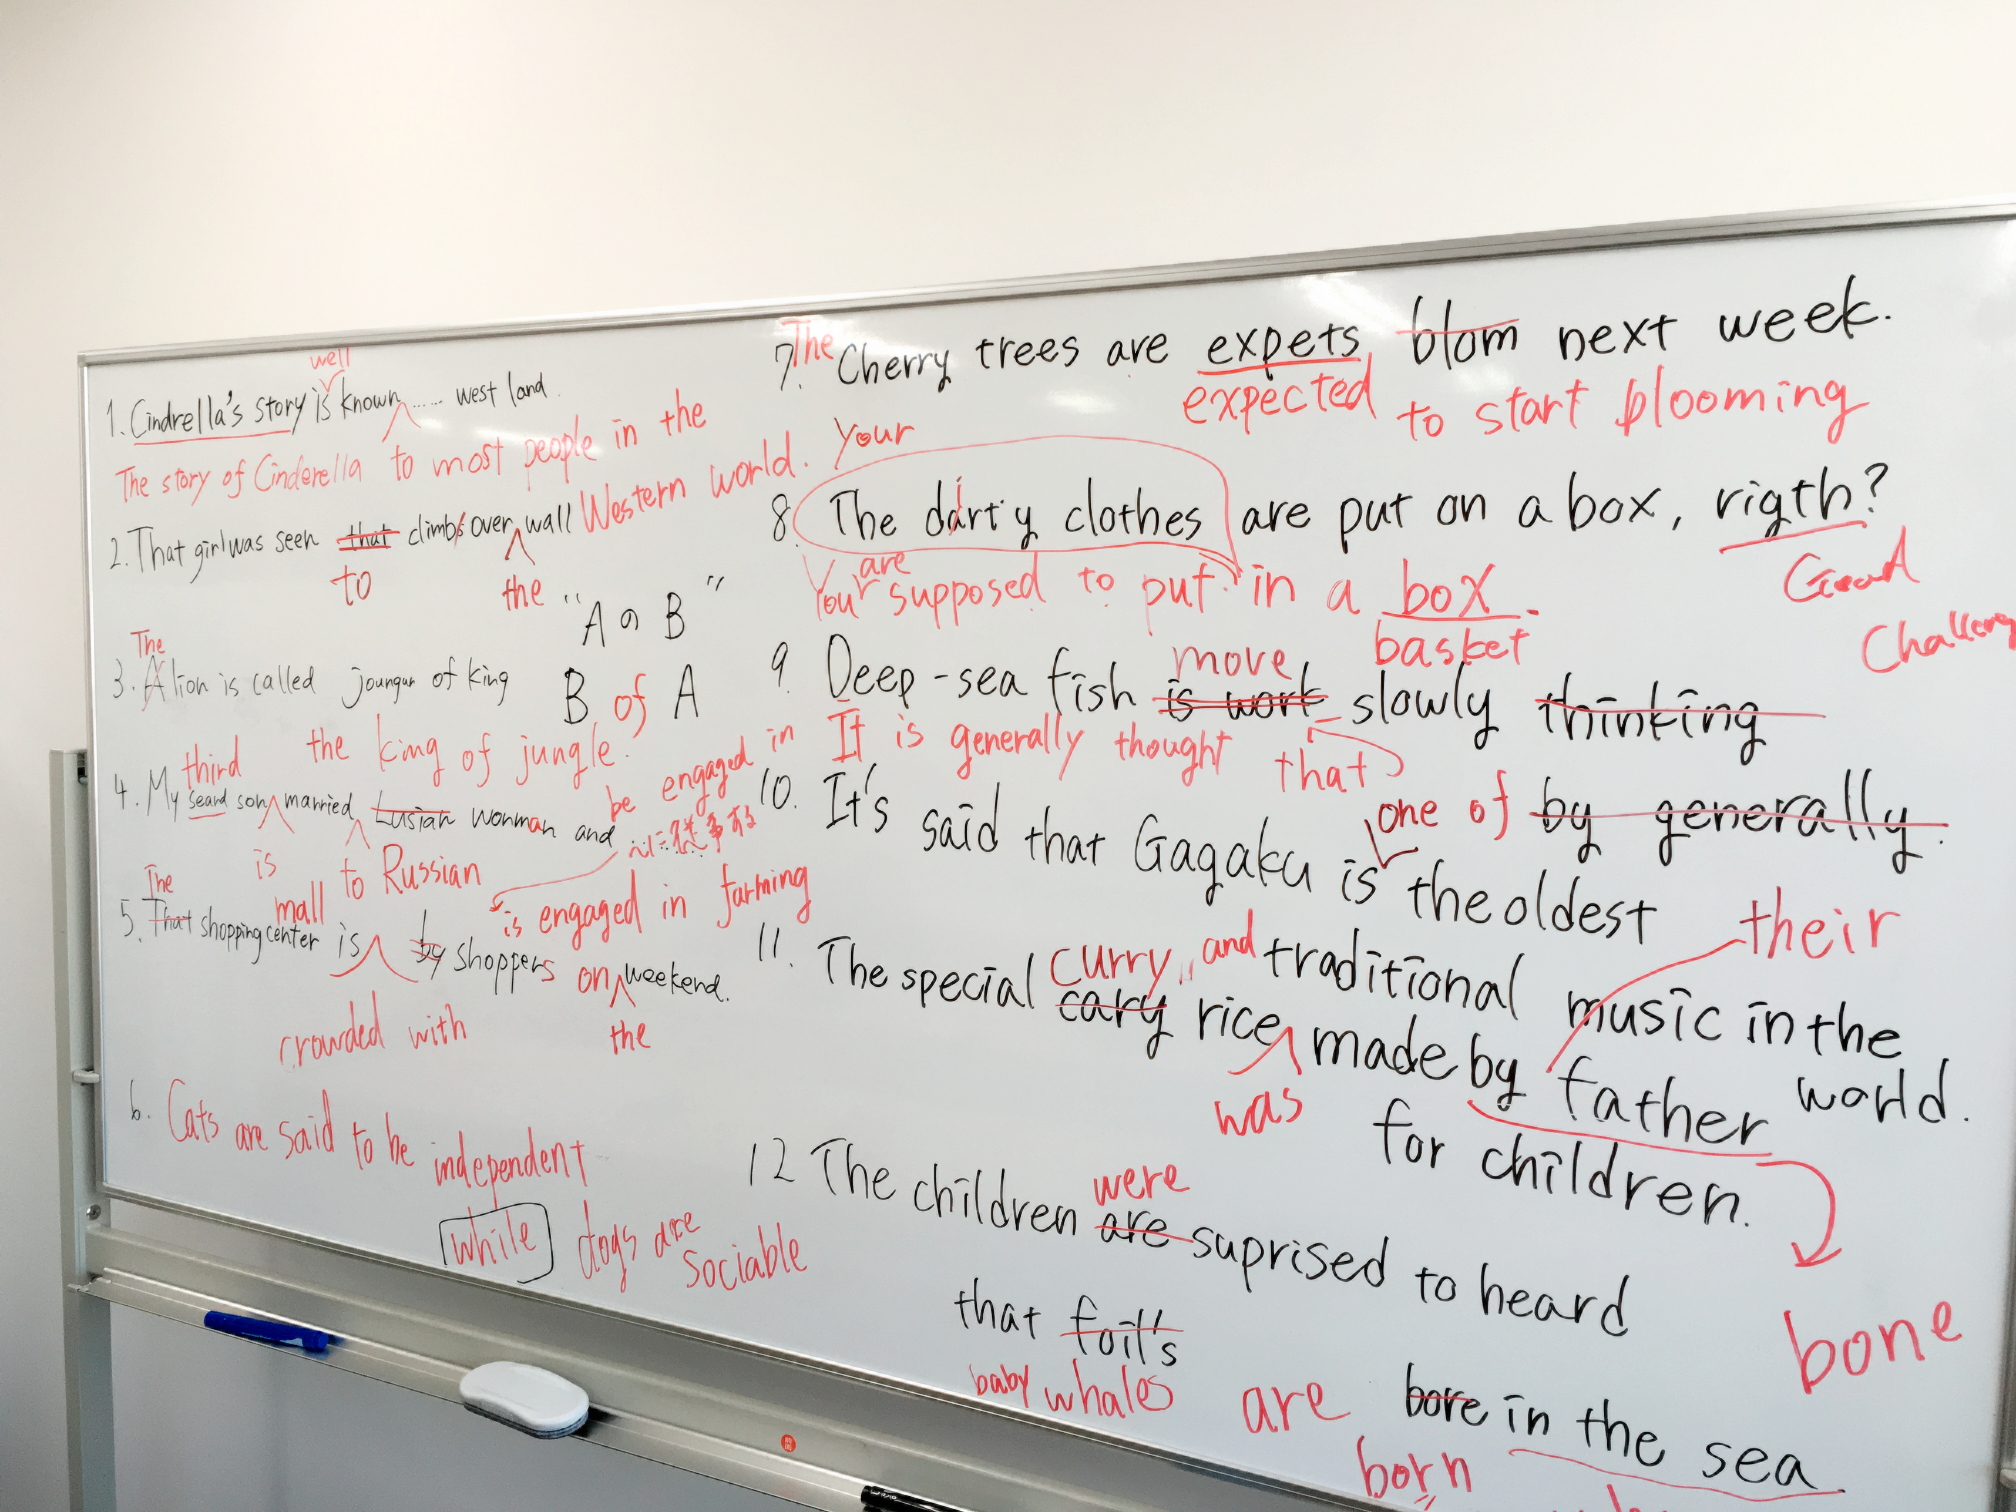 well
1. Cindrella's story is known ...... west land.
The story of Cinderella to most people in the
Western world.
2. That girl was seen that climbs over wall
to the
"A の B"
The
3. A lion is called joungun of king
B of A
the king of jungle.
third
4. My seard son married Lusian wonman and
be engaged in
に従事する
is to Russian
is engaged in farming
The mall
5. That shopping center is by shoppers on weekend.
crowded with the
6. Cats are said to be independent
while dogs are
sociable
7. The Cherry trees are expets blom next week.
expected to start blooming
Your
8. The dirty clothes are put on a box, rigth?
Good
are
You supposed to put in a box.
basket
move
9. Deep-sea fish is work slowly thinking
It is generally thought that
by generally.
one of
10. It's said that Gagaku is the oldest
traditional music in the
world.
curry and their
11. The special cary rice made by father
was
for children.
were
12 The children are suprised to heard
that foil's
baby whales are bore in the sea
born
bone